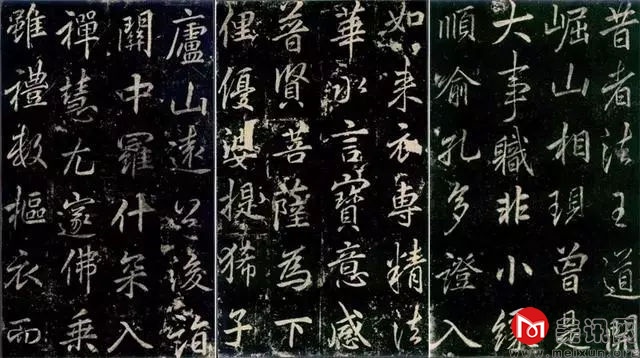 昔者法王道開
崛山相現曾是
大事職非小緣
順喻孔多證入
如来衣専精法
華水言寶意感
普賢菩薩為下
俚優婆提子
廬山遠公後詣
關中羅什入
禪慧尤邃佛乘
雖禮數樞衣而